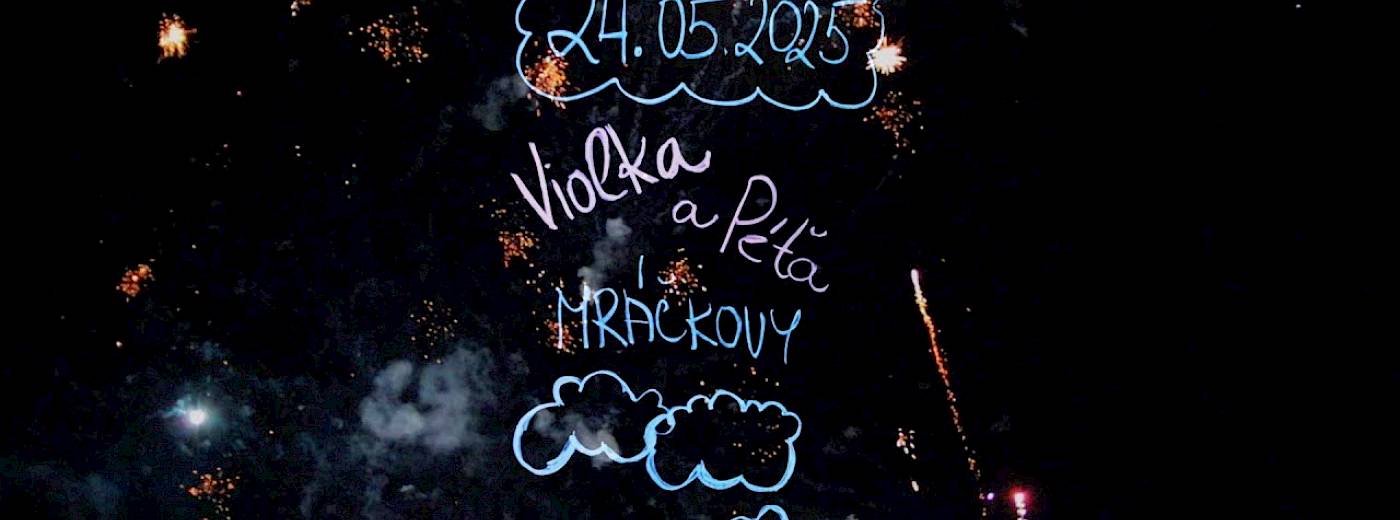 24.05.2025
Violka
a Péťa
MRÁČKOVY